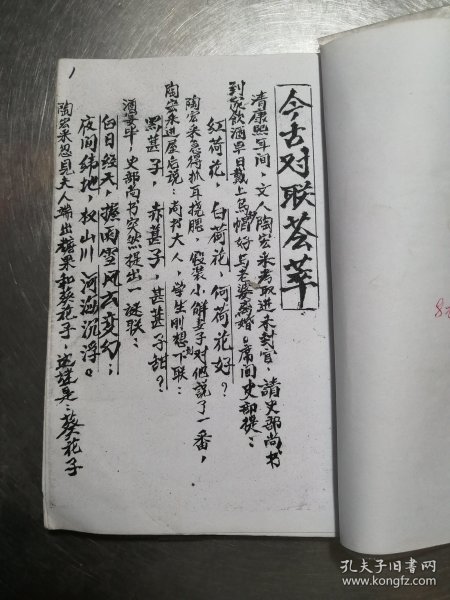 今古对联荟萃
清康熙年间，文人陶宏采考取进未封官，请吏部尚书
到家饮酒早日戴上乌帽好与老婆离婚。席间吏部提：
红荷花，白荷花，何荷花好？
陶宏采急得抓耳挠腮，假装小解妻子对他说了一番，
陶宏采进屋后说：尚书大人，学生则想下联：
黑葚子，赤葚子，甚葚子甜？
酒宴毕，吏部尚书突然提出一谜联：
白日经天，据雨雪风云变幻；
夜间纬地，权山川河海沉浮。
陶宏采忽见夫人端出糖果和葵花子，这谜是：葵花子
1
孔夫子旧书网
www.kongfz.com